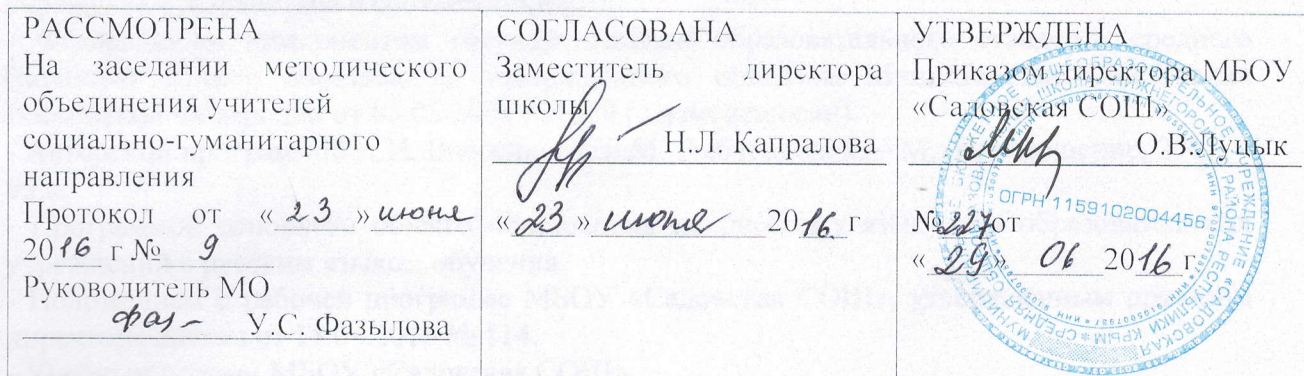 РАССМОТРЕНА
На заседании методического
объединения учителей
социально-гуманитарного
направления
Протокол от « 23 » июня
2016 г № 9
Руководитель МО
У.С. Фазылова
СОГЛАСОВАНА
Заместитель директора
школы
Н.Л. Капралова
« 23 » июня 2016
УТВЕРЖДЕНА
Приказом директора МБОУ
«Садовская СОШ»
О.В. Луцык
№ 227 от
« 29 » 06 2016 г.
ОГРН 1159102004456